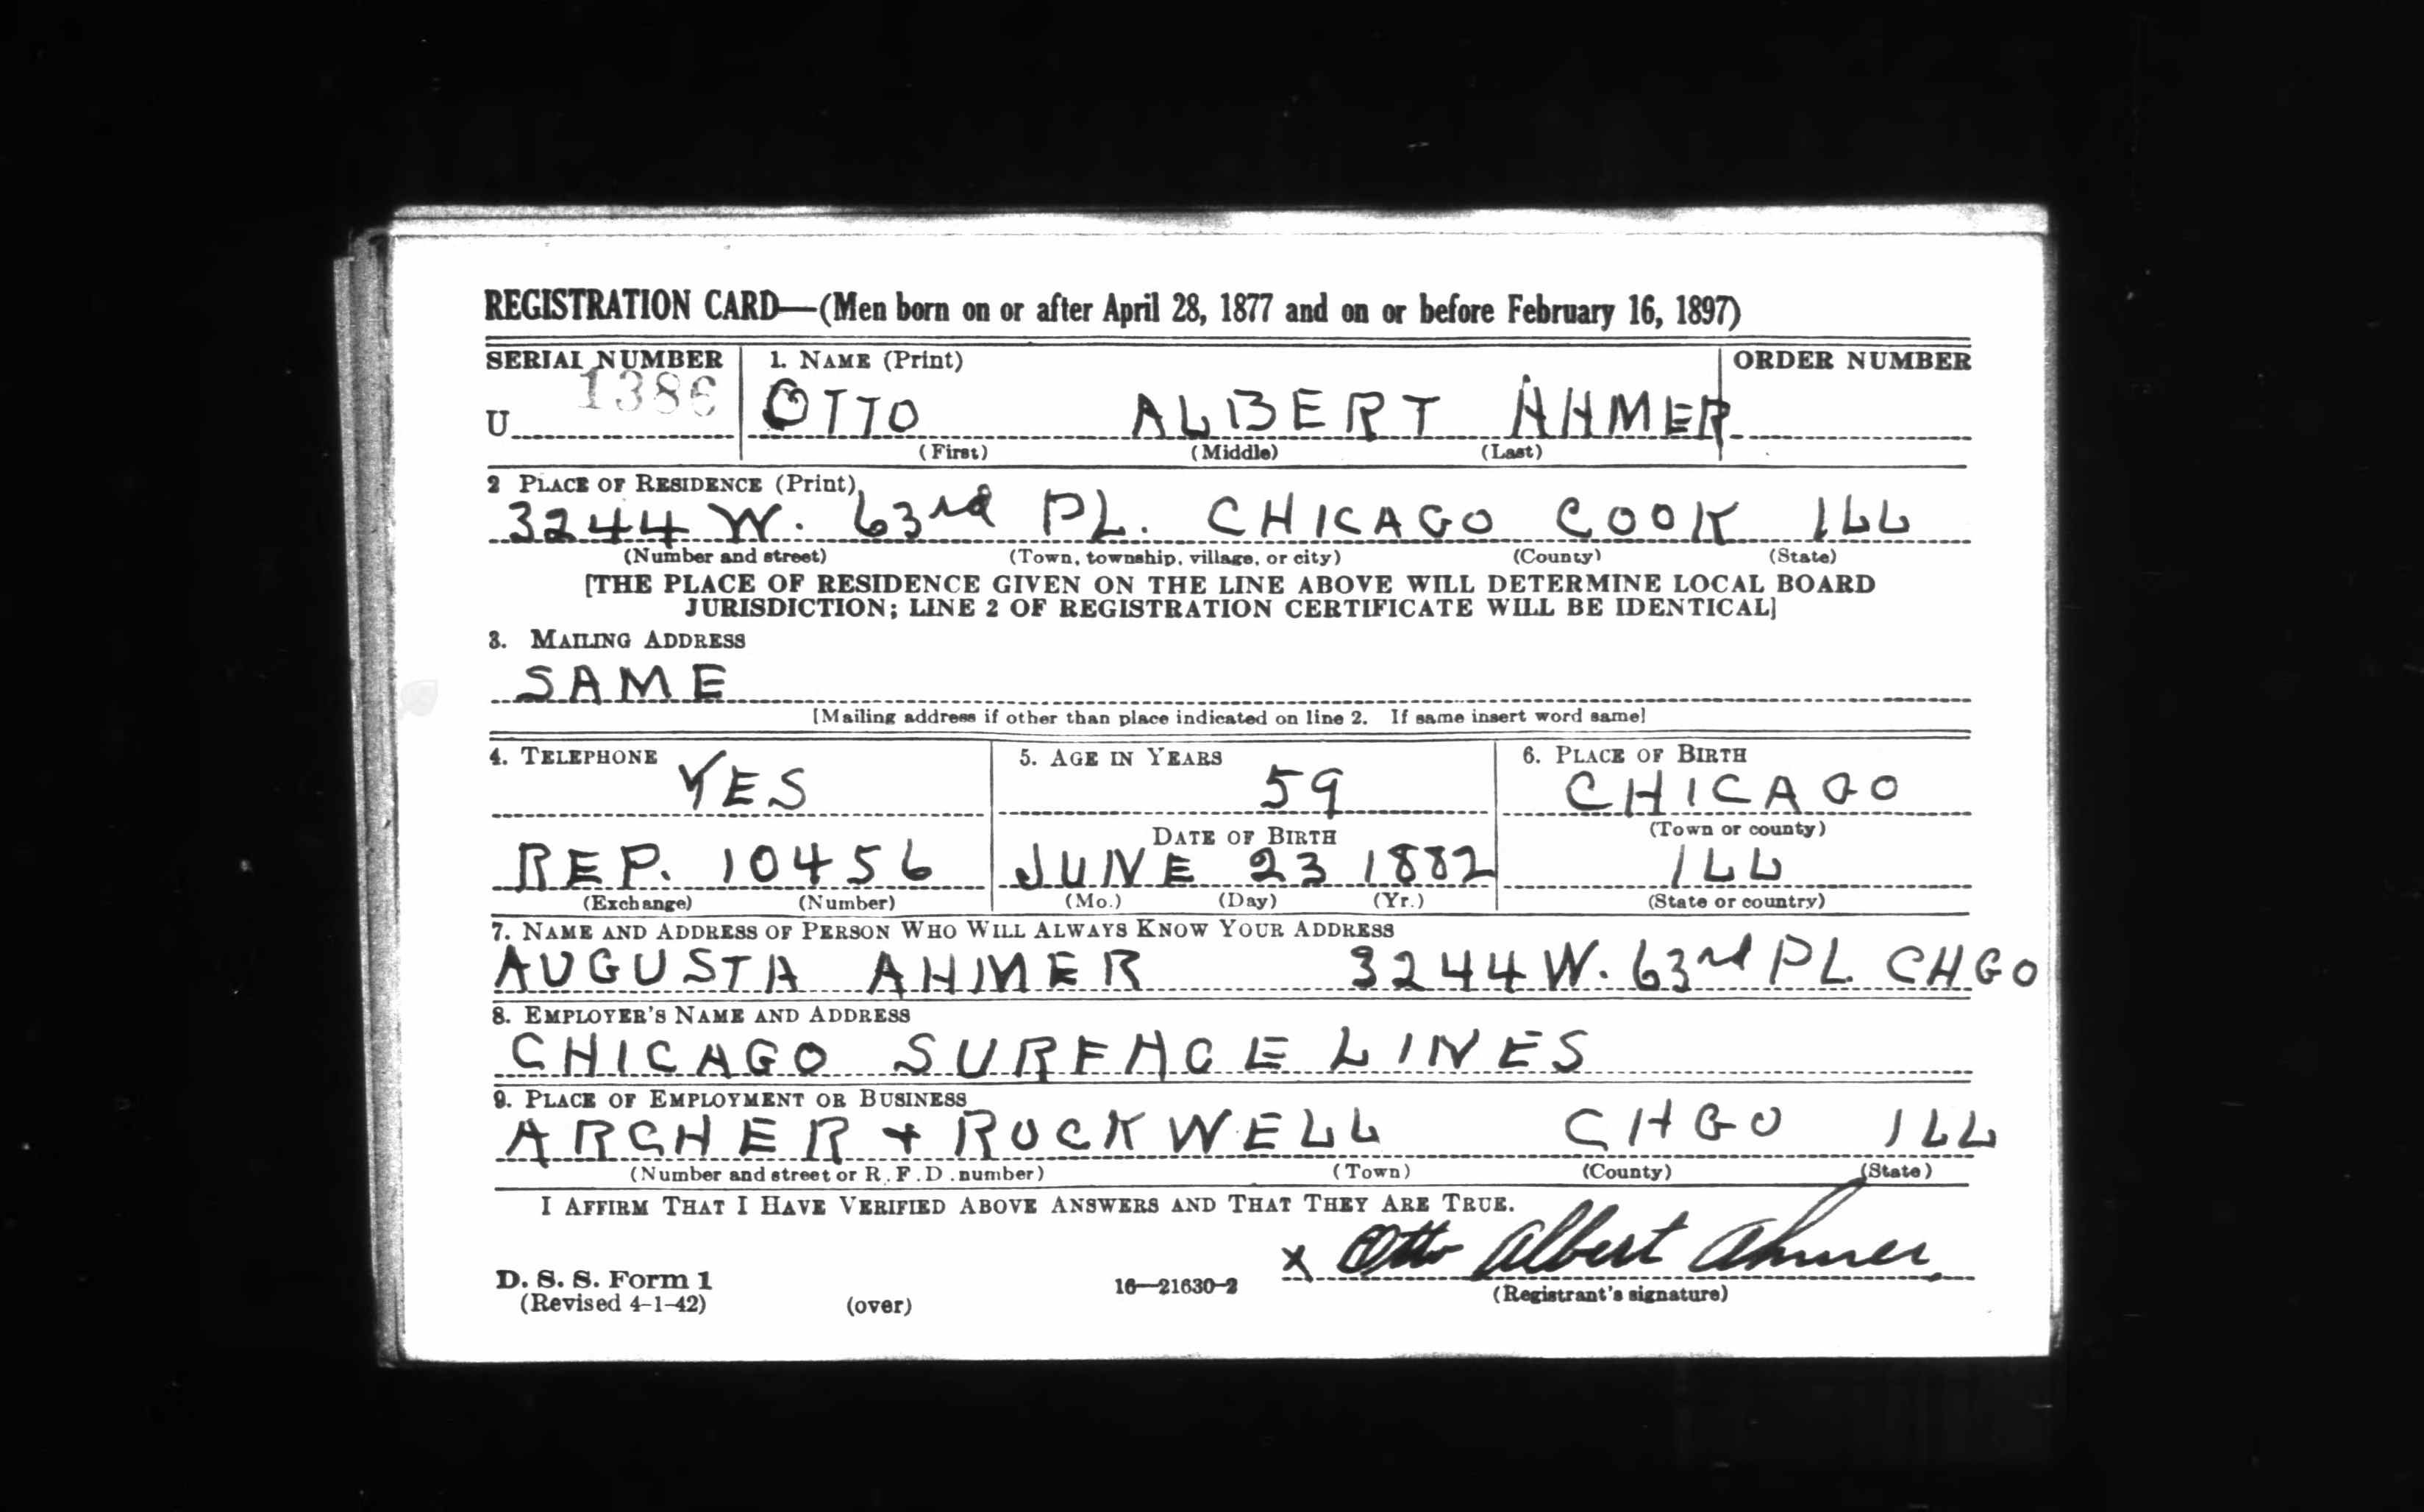 REGISTRATION CARD—(Men born on or after April 28, 1877 and on or before February 16, 1897)
SERIAL NUMBER 1. NAME (Print) ORDER NUMBER
U 1386 OTTO ALBERT AHMER
(First) (Middle) (Last)
2 PLACE OF RESIDENCE (Print)
3244 W. 63rd PL. CHICAGO COOK ILL
(Number and street) (Town, township, village, or city) (County) (State)
[THE PLACE OF RESIDENCE GIVEN ON THE LINE ABOVE WILL DETERMINE LOCAL BOARD
JURISDICTION; LINE 2 OF REGISTRATION CERTIFICATE WILL BE IDENTICAL]
3. MAILING ADDRESS
SAME
[Mailing address if other than place indicated on line 2. If same insert word same]
4. TELEPHONE 5. AGE IN YEARS 6. PLACE OF BIRTH
YES 59 CHICAGO
DATE OF BIRTH (Town or county)
REP. 10456 JUNE 23 1882 ILL
(Exchange) (Number) (Mo.) (Day) (Yr.) (State or country)
7. NAME AND ADDRESS OF PERSON WHO WILL ALWAYS KNOW YOUR ADDRESS
AUGUSTA AHMER 3244 W. 63rd PL CHGO
8. EMPLOYER'S NAME AND ADDRESS
CHICAGO SURFACE LINES
9. PLACE OF EMPLOYMENT OR BUSINESS
ARCHER + ROCKWELL CHGO ILL
(Number and street or R.F.D. number) (Town) (County) (State)
I AFFIRM THAT I HAVE VERIFIED ABOVE ANSWERS AND THAT THEY ARE TRUE.
X Otto Albert Ahmer
D. S. S. Form 1 16—21630-2 (Registrant's signature)
(Revised 4-1-42) (over)